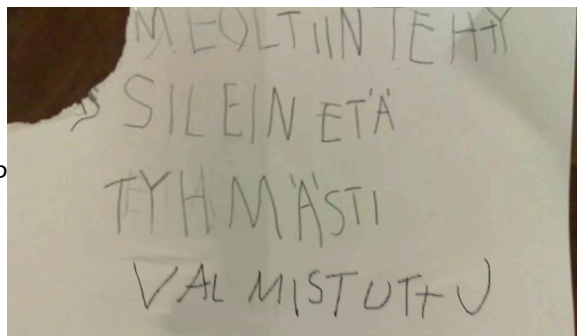 MEOLTIIN TEHTY
SILEIN ETÄ
TYHMÄSTI
VALMISTUTTU